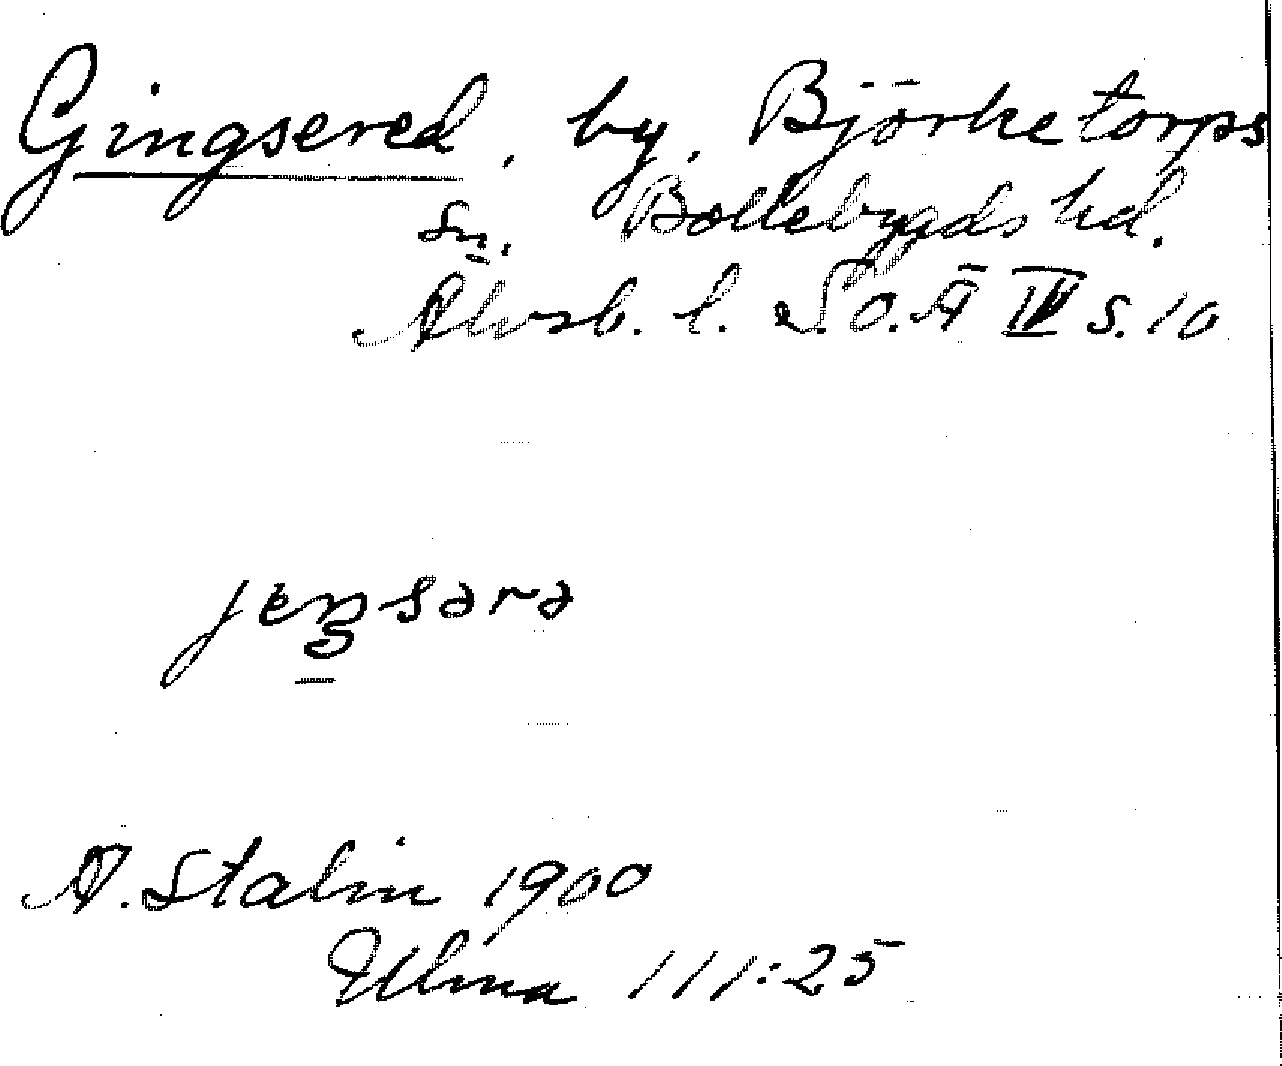 Gingsered, by, Björketorps
sn. Bollebygds hd.
Älvsb. l. S.O.Ä IV s. 10
jeŋsərə
A. Stalin 1900
Ulma 111:25